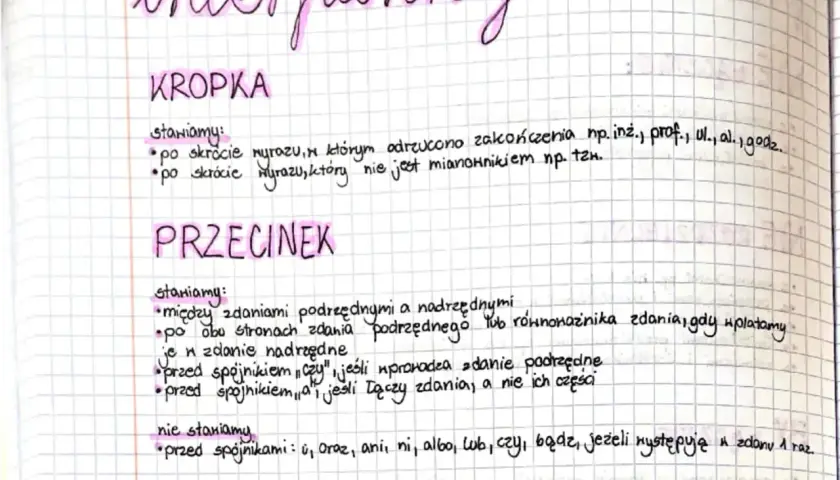 KROPKA
stawiamy:
•po skrócie wyrazu, w którym odrzucono zakończenia np. inż., prof., ul., al., godz.
•po skrócie wyrazu, który nie jest mianownikiem np. tzw.
PRZECINEK
stawiamy:
•między zdaniami podrzędnymi a nadrzędnymi
•po obu stronach zdania podrzędnego lub równoważnika zdania, gdy wplatamy
je w zdanie nadrzędne
•przed spójnikiem „czy", jeśli wprowadza zdanie podrzędne
•przed spójnikiem „a", jeśli łączy zdania, a nie ich części
nie stawiamy
•przed spójnikami: i, oraz, ani, ni, albo, lub, czy, bądź, jeżeli występują w zdaniu 1 raz